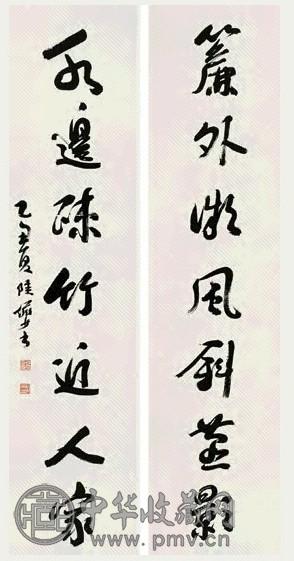 簾外微風斜燕影
水邊疎竹近人家
乙丑夏陸儼少書
中华收藏网
www.pmv.cn